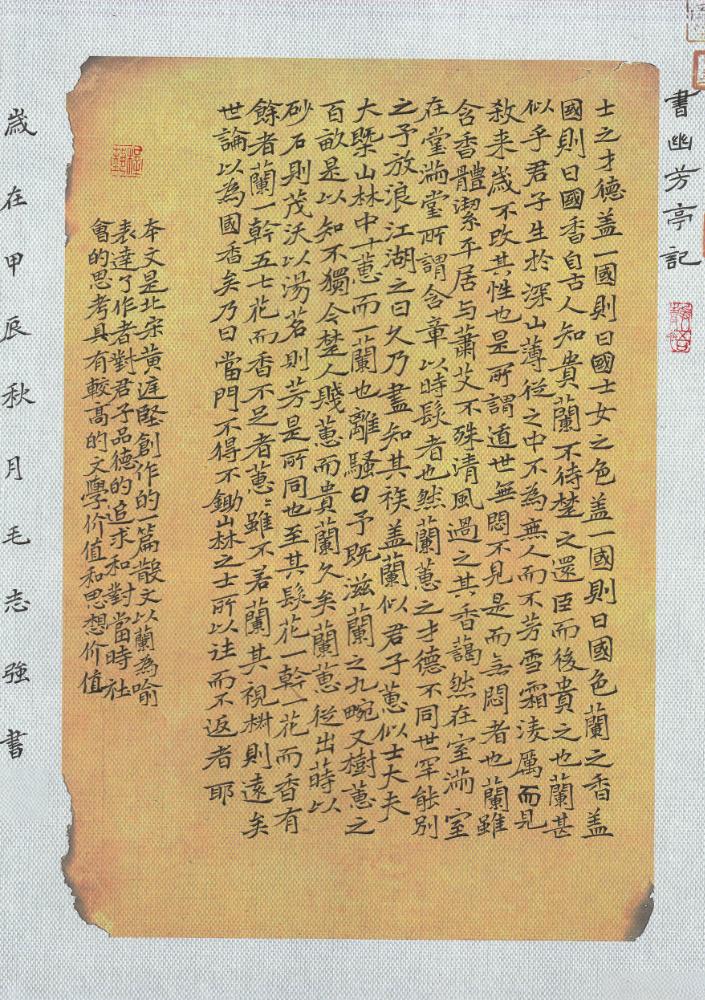 書幽芳亭記
士之才德盖一國則曰國士女之色盖一國則曰國色蘭之香盖
國則曰國香自古人知貴蘭不待楚之還臣而後貴之也蘭甚
似乎君子生於深山薄從之中不為無人而不芳雪霜淩厲而見
殺来嵗不改其性也是所謂遁世無悶不見是而無悶者也蘭雖
含香體潔平居与蕭艾不殊清風過之其香藹然在室滿室
在堂滿堂所謂含章以時發者也然蘭蕙之才德不同世罕能别
之予放浪江湖之日久乃盡知其族盖蘭似君子蕙似士大夫
大槩山林中十蕙而一蘭也離騷曰予既滋蘭之九畹又樹蕙之
百畝是以知不獨今楚人賤蕙而貴蘭久矣蘭蕙從出蒔以
砂石則茂沃以湯茗則芳是所同也至其髮花一幹一花而香有
餘者蘭一幹五七花而香不足者蕙蕙雖不若蘭其視樹則遠矣
世論以為國香矣乃曰當門不得不鋤山林之士所以往而不返者耶
本文是北宋黄庭堅創作的一篇散文以蘭為喻
表達了作者對君子品德的追求和對當時社
會的思考具有較高的文學价值和思想价值
嵗在甲辰秋月毛志強書